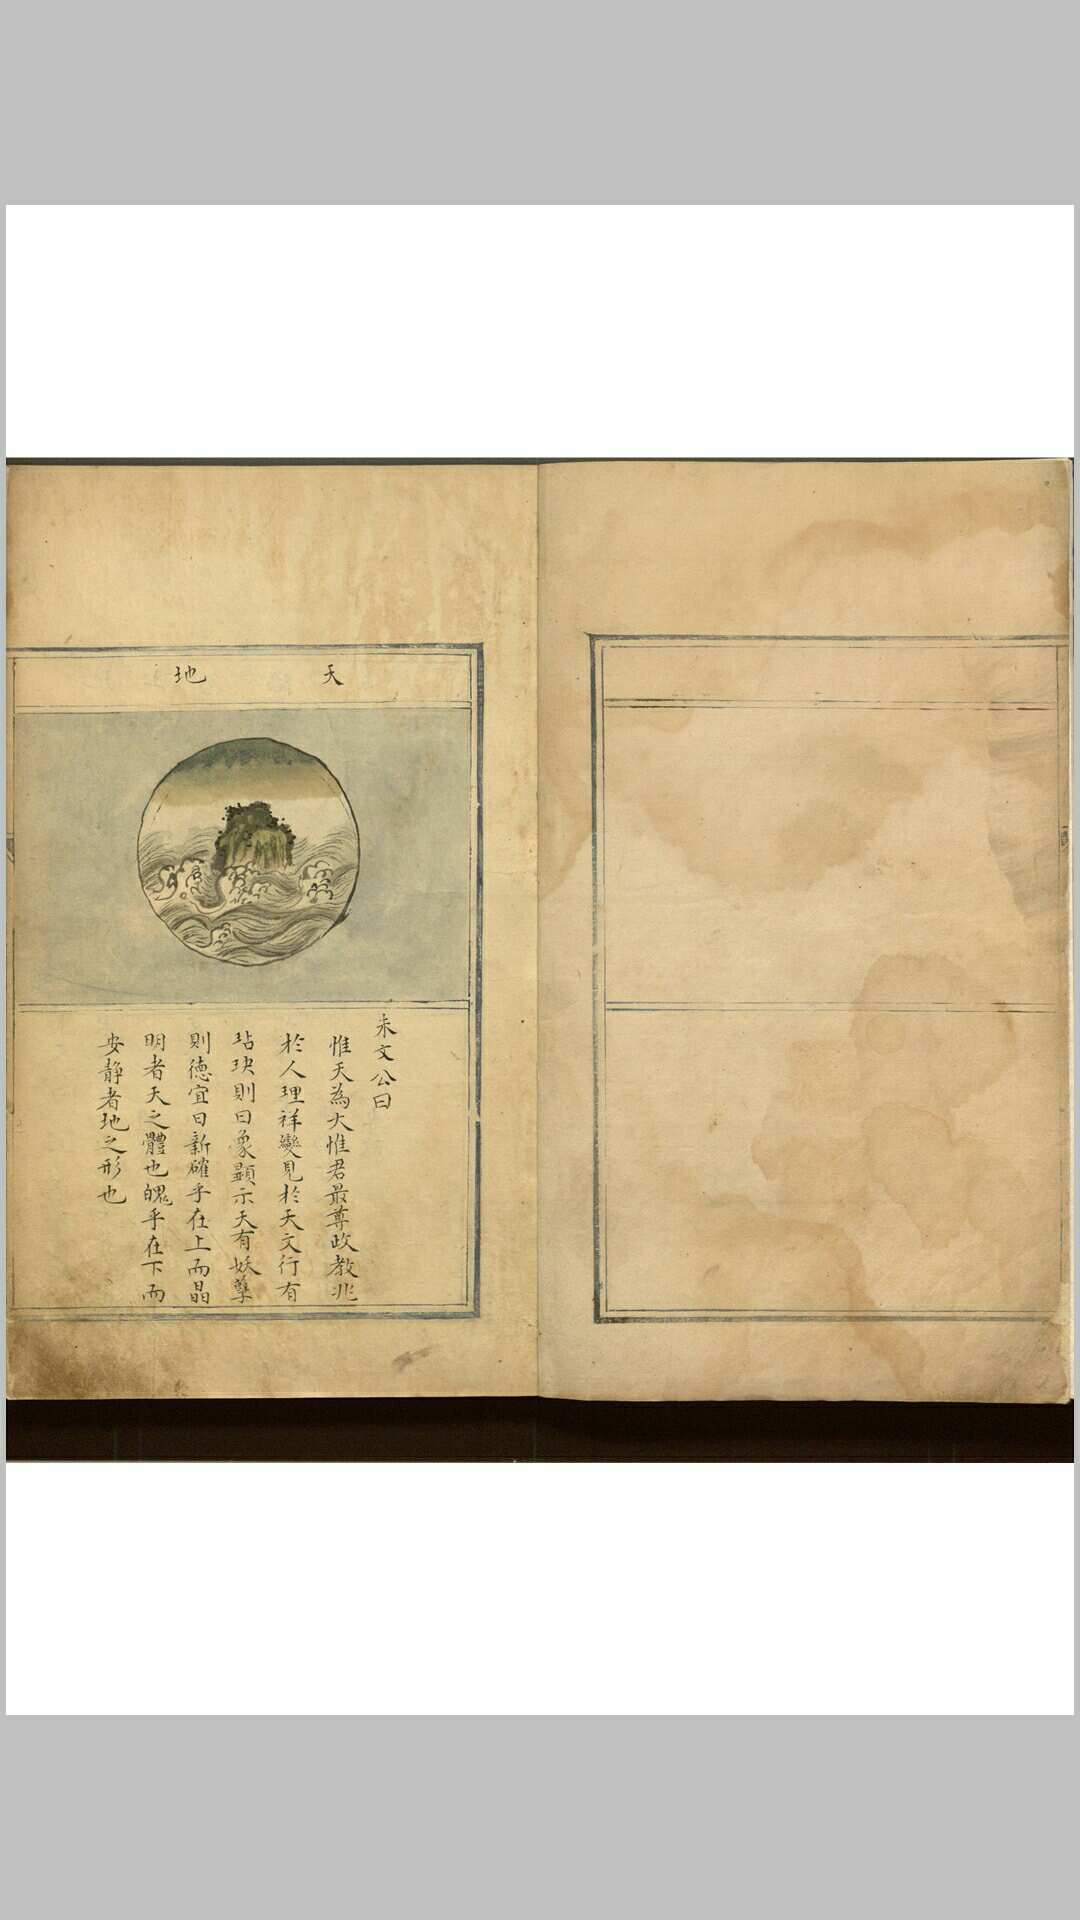 天地
朱文公曰
惟天為大惟君最尊政教兆
於人理祥變見於天文行有
玷玦則日象顯示天有妖孽
則德宜日新確乎在上而晶
明者天之體也媿乎在下而
安靜者地之形也